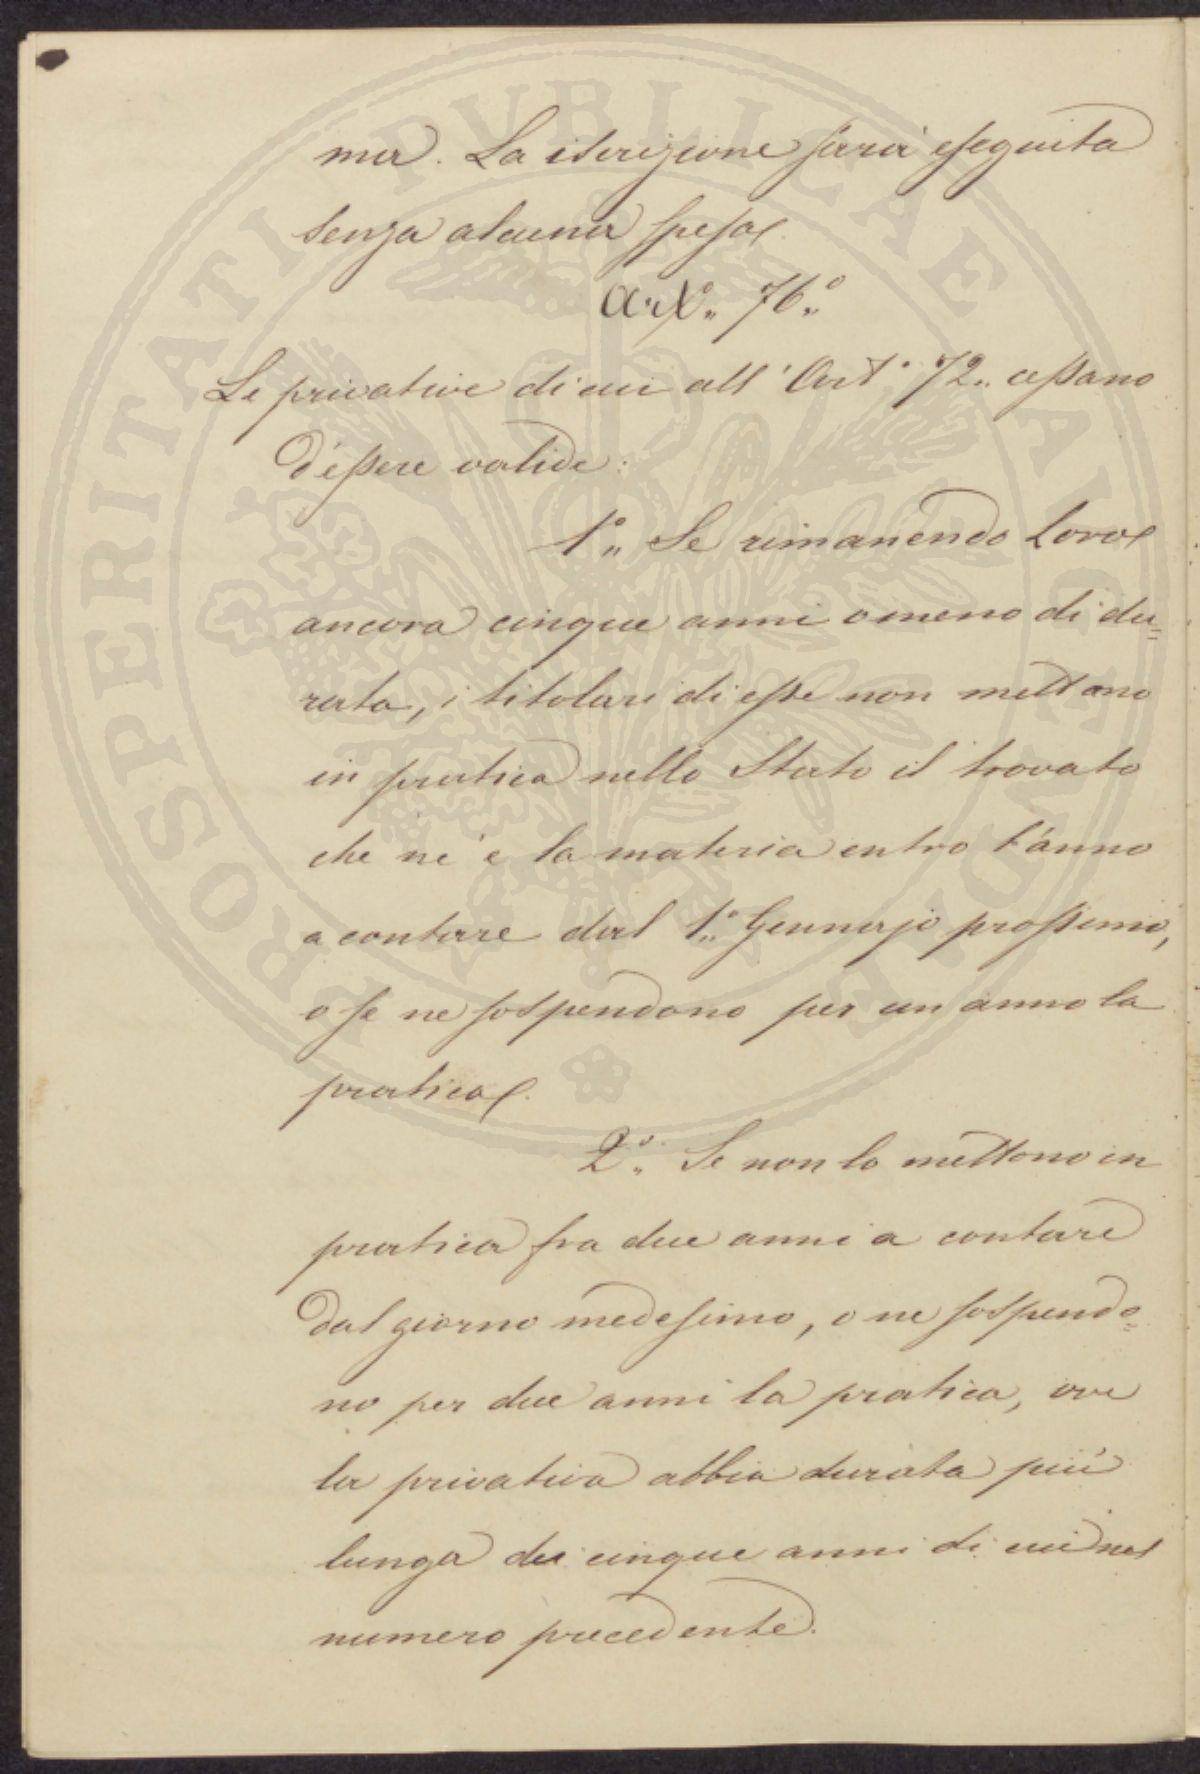 ma. La iscrizione sarà eseguita
senza alcuna spesa.
Art.º 76.º
Le privative di cui all'Art.º 72. cessano
d'essere valide:
1.º Se rimanendo loro
ancora cinque anni o meno di du=
rata, i titolari di esse non mettano
in pratica nello Stato il trovato
che ne è la materia entro l'anno
a contare dal 1.º Gennajo prossimo,
o se ne sospendono per un anno la
pratica.
2.º Se non lo mettono in
pratica fra due anni a contare
dal giorno medesimo, o ne sospendo=
no per due anni la pratica, ove
la privativa abbia durata più
lunga dei cinque anni di cui nel
numero precedente.
PROSPERITATI PUBLICAE AUGENDAE